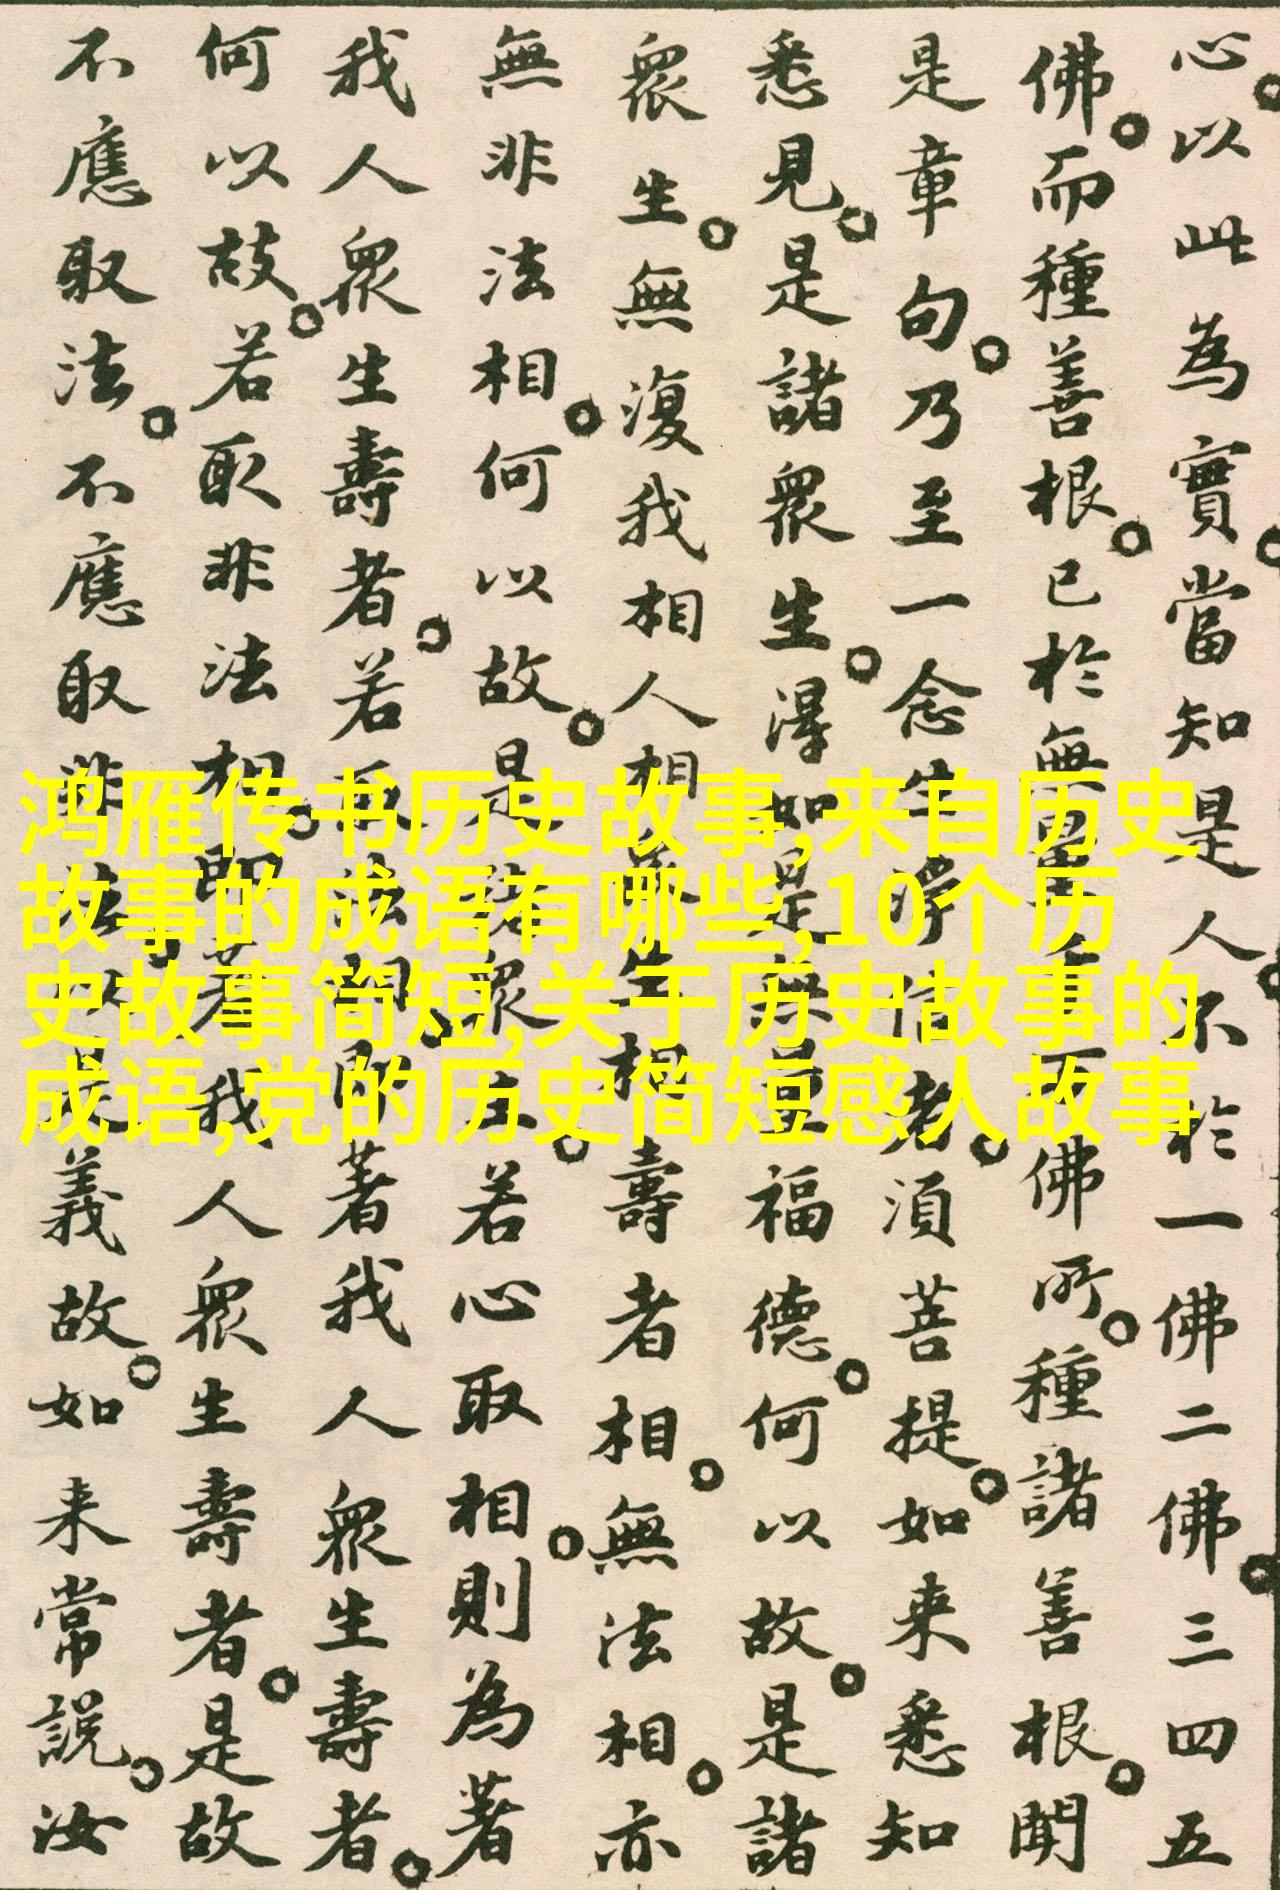 心。以此為實。當知是人。不於一佛二佛。三四五
佛。而種善根。已於無量千万佛所。種諸善根。聞
是章句。乃至一念生淨信者。須菩提。如来悉知
悉見。是諸衆生。得如是無量福德。何以故。是諸
衆生。無復我相人相衆生相壽者相。無法相。亦
無非法相。何以故。是諸衆生。若心取相。則為著
我人衆生壽者。若取法相。即著我人衆生壽者。
何以故。若取非法相。即著我人衆生壽者。是故
不應取法。不應取非法。以是義故。如来常説。汝
鸿雁传书历史故事,来自历史
故事的成语有哪些,10个历
史故事简短,关于历史故事的
成语,党的历史简短感人故事